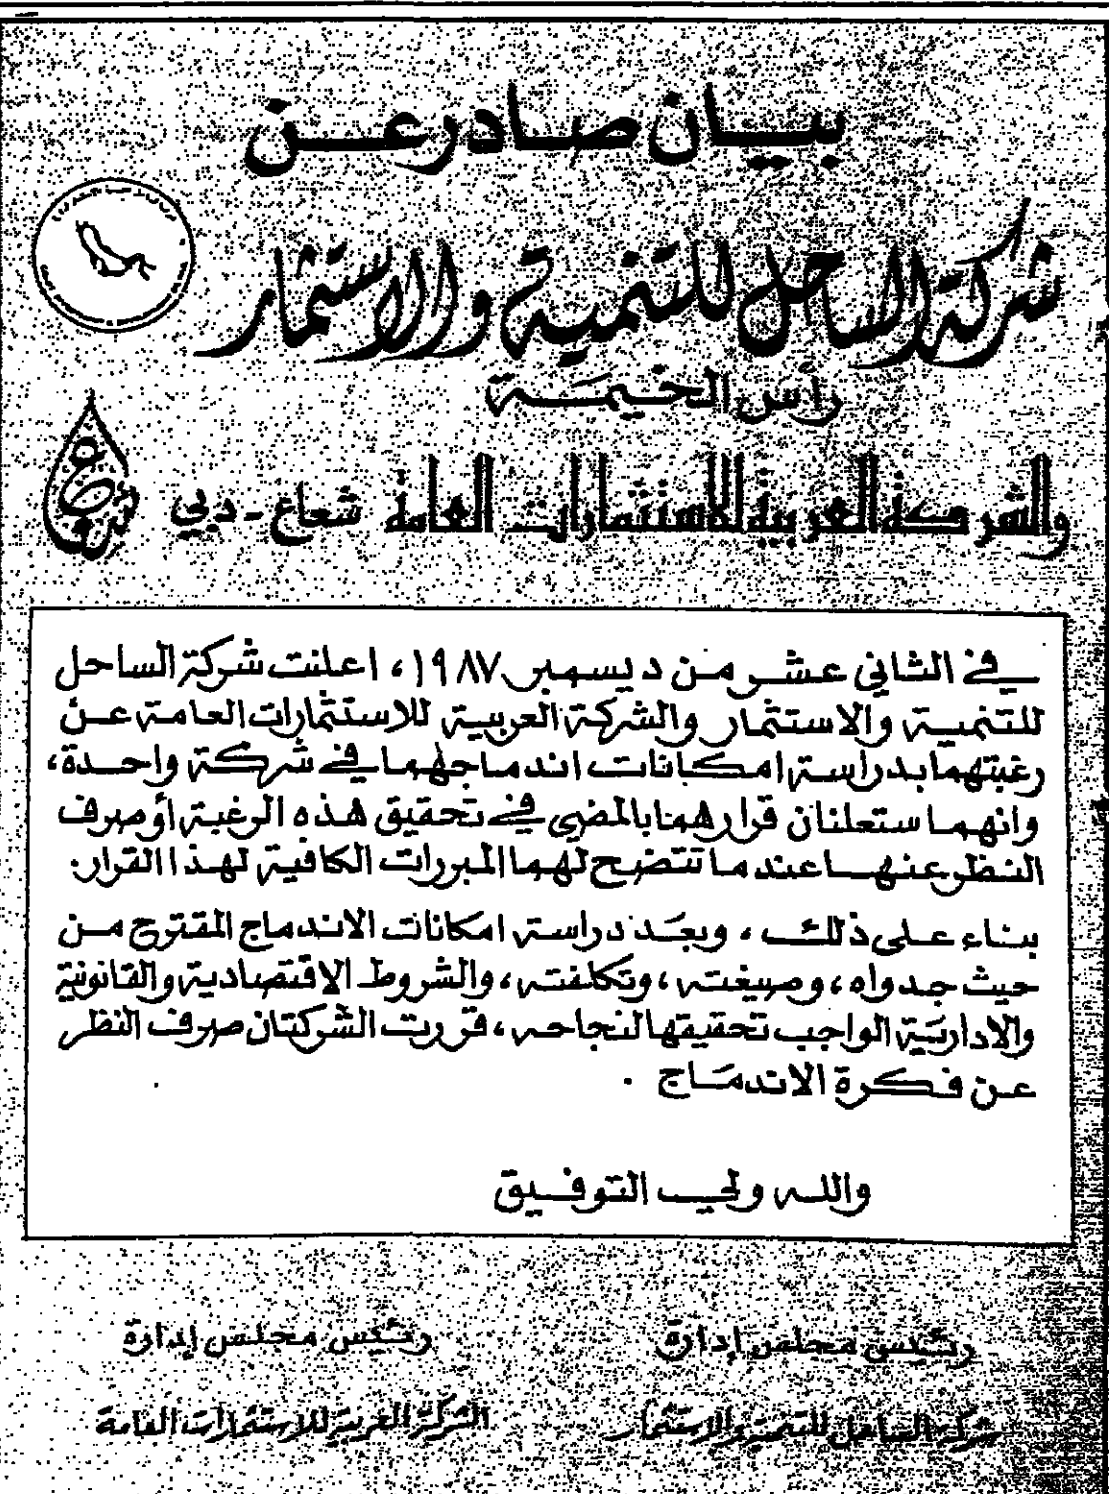 بيان صادر عن
شركة الساحل للتنمية والاستثمار
رأس الخيمة
والشركة العربية للاستثمارات العامة شعاع - دبي
شعاع
في الثاني عشر من ديسمبر ١٩٨٧، اعلنت شركة الساحل
للتنمية والاستثمار والشركة العربية للاستثمارات العامة عن
رغبتهما بدراسة امكانات اندماجهما في شركة واحدة،
وانهما ستعلنان قرارهما بالمضي في تحقيق هذه الرغبة أو صرف
النظر عنها عندما تتضح لهما المبررات الكافية لهذا القرار.
بناء على ذلك، وبعد دراسة امكانات الاندماج المقترح من
حيث جدواه، وصيغته، وتكلفته، والشروط الاقتصادية والقانونية
والادارية الواجب تحقيقها لنجاحه، قررت الشركتان صرف النظر
عن فكرة الاندماج .
والله ولي التوفيق
رئيس مجلس إدارة
شركة الساحل للتنمية والاستثمار
رئيس مجلس إدارة
الشركة العربية للاستثمارات العامة